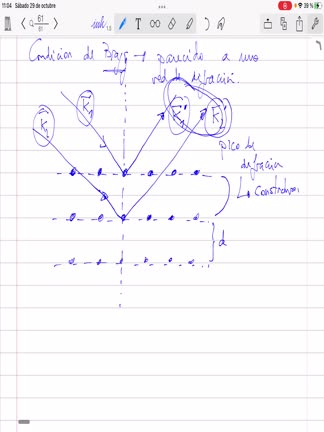 11:04 Sábado 29 de octubre
39 %
61
61
Condición de Bragg → parecido a una
red de difracción.
K₁ K₁ K₁' K₁'
pico de
difracción
↳ Constructiva
d